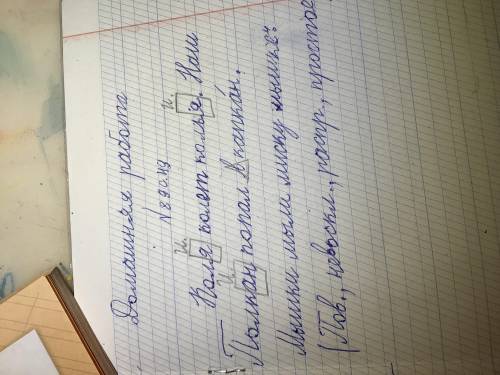 Домашняя работа
Коля колет колья. Наш
Полкан попал в капкан.
Мышки мыли миску мышке.
(Пов., невоскл., распр., простое,